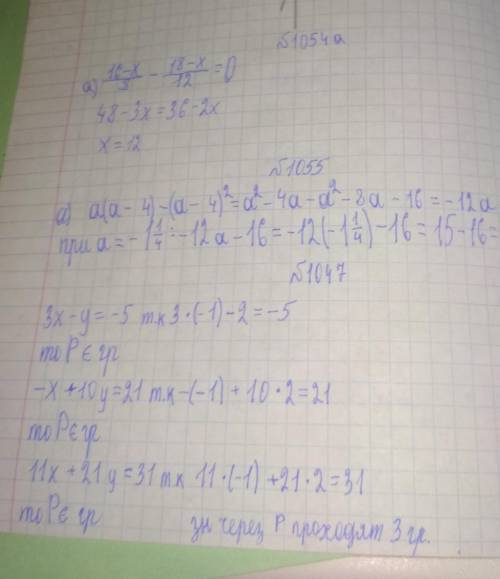 №1054а
а) (16-x)/8 - (18-x)/12 = 0
48-3x=36-2x
x=12
№1055
а) a(a-4)-(a-4)²=a²-4a-a²-8a-16=-12a
при a=-1 1/4: -12a-16=-12(-1 1/4)-16=15-16=
№1047
3x-y=-5 т.к 3·(-1)-2=-5
то P∈гр
-x+10y=21 т.к -(-1)+10·2=21
то P∈гр
11x+21y=31 т.к 11·(-1)+21·2=31
то P∈гр зн через P проходят 3 гр.